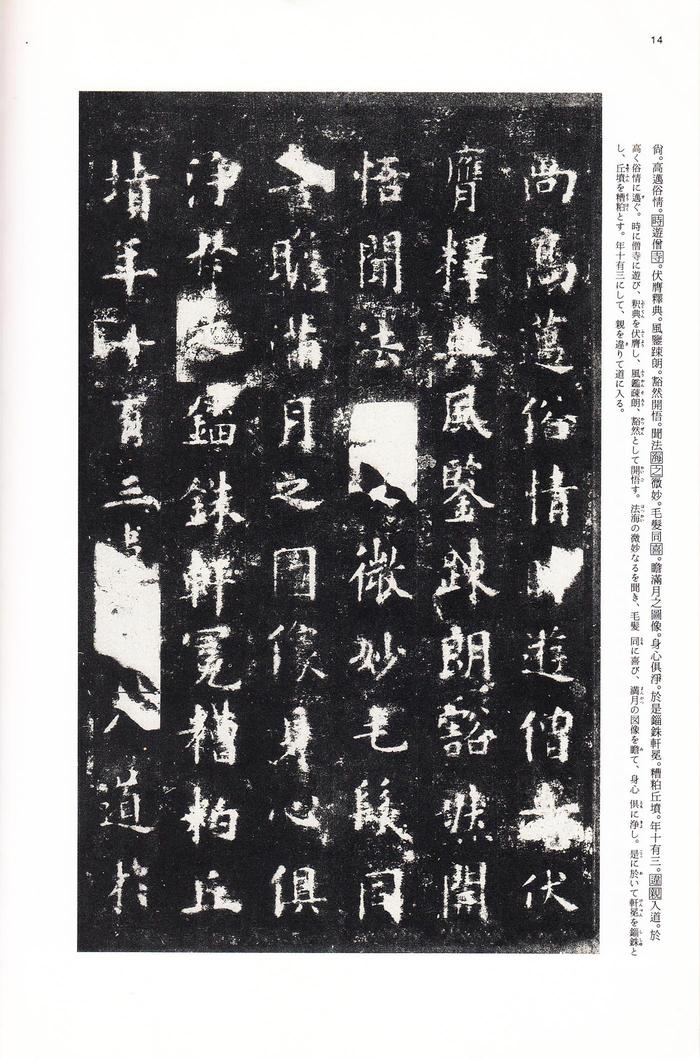 14
尙。高邁俗情。時遊僧寺。伏膺釋典。風鑒踈朗。豁然開悟。聞法海之微妙。毛髮同喜。瞻滿月之圖像。身心俱淨。於是錙銖軒冕。糟粕丘墳。年十有三。違親入道。於
高く俗情に邁ぐ。時に僧寺に遊び、釈典を伏膺し、風鑑疎朗、豁然として開悟す。法海の微妙なるを聞き、毛髪 同に喜び、満月の図像を瞻て、身心 倶に浄し。是に於いて軒冕を錙銖と
し、丘墳を糟粕とす。年十有三にして、親を違りて道に入る。
尚高邁俗情遊僧伏
膺釋典風鑒踈朗豁然開
悟聞法微妙毛髮同
瞻滿月之圖像身心俱
淨於錙銖軒冕糟粕丘
墳年十有三入道於